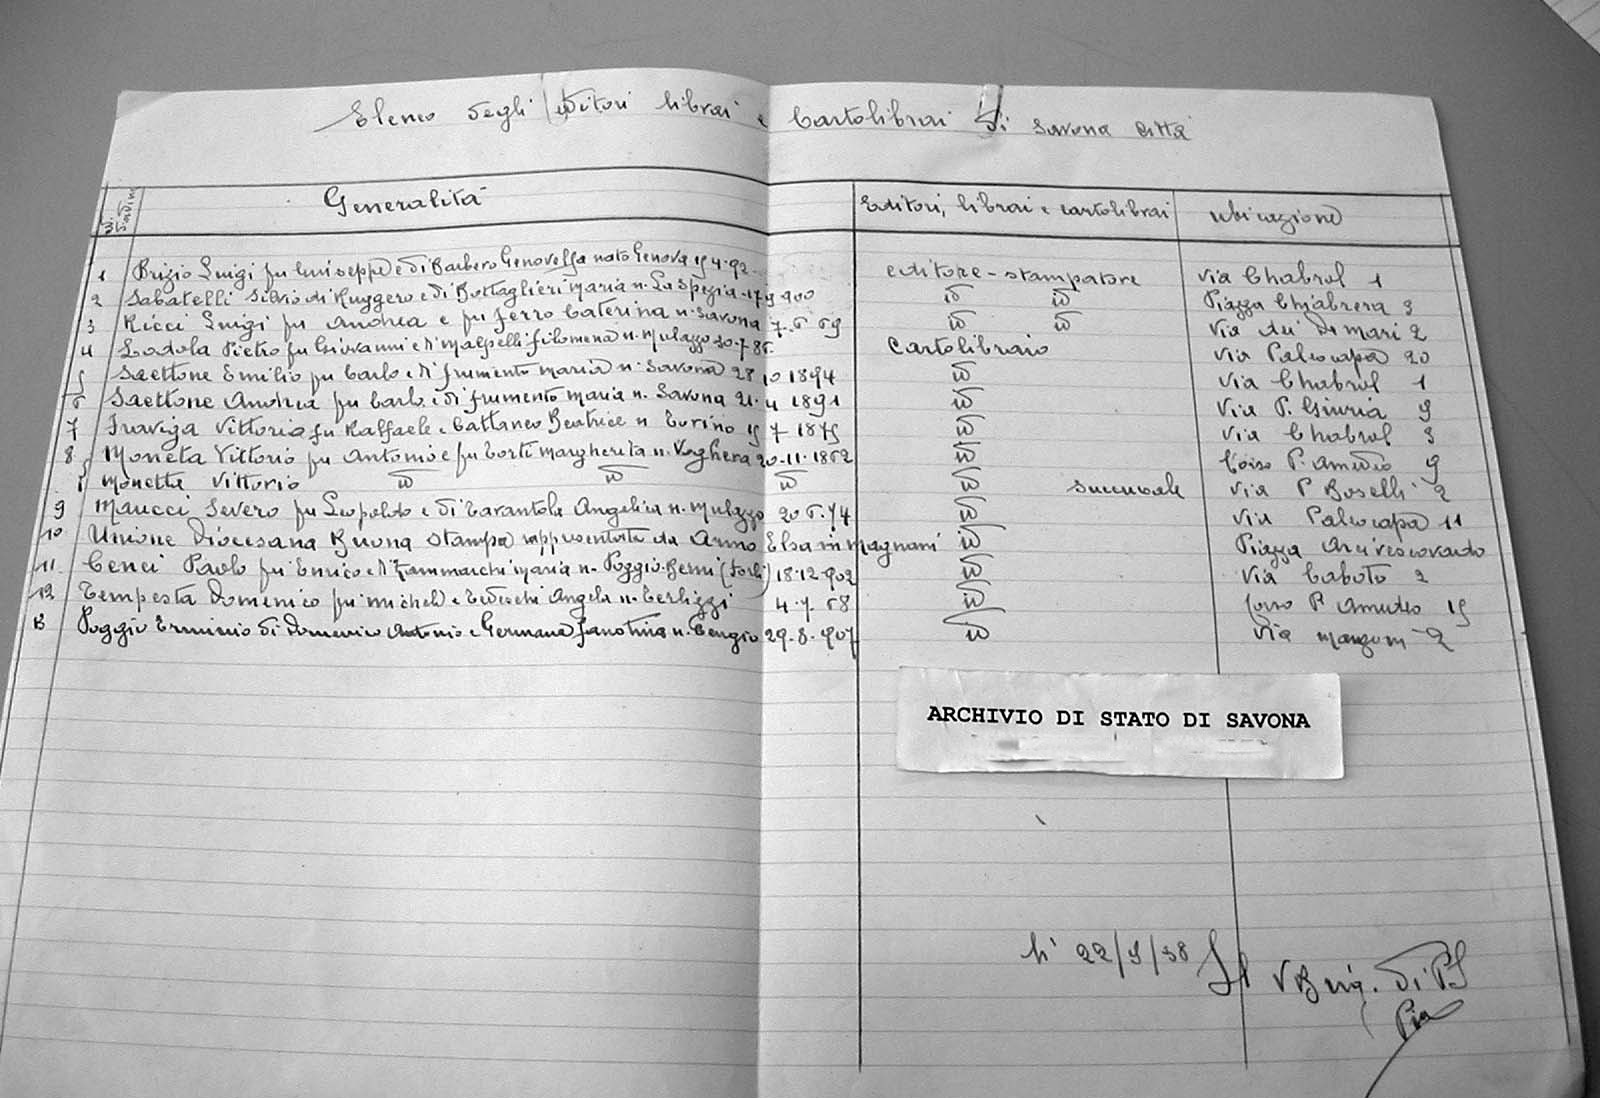 Elenco degli Editori librai e Cartolibrai di Savona Città
N. d'ordine Generalità Editori, librai e cartolibrai ubicazione
1 Brizio Luigi fu Giuseppe e di Barbero Genoveffa nato Genova 15 4-92 editore-stampatore via Chabrol 1
2 Sabatelli Silvio di Ruggero e di Bottaglieri Maria n. La Spezia-17 9 900 id id Piazza Chiabrera 3
3 Ricci Luigi fu Andrea e fu Ferro Caterina n. Savona 7-6 69 id id via dei De Mari 2
4 Lodola Pietro fu Giovanni e di Malpelli Filomena n. Mulazzo 30-7-86 Cartolibraio via Paleocapa 20
5 Saettone Emilio fu Carlo e di Frumento Maria n. Savona 28 10 1894 id via Chabrol 1
6 Saettone Andrea fu Carlo e di Frumento Maria n. Savona 21-4 1891 id via P. Giuria 9
7 Traviga Vittorio fu Raffaele e Cattaneo Beatrice n Torino 15 7 1875 id via Chabrol 3
8 Moneta Vittorio fu Antonio e fu Torti Margherita n. Voghera 20-11-1862 id Corso P. Amedeo 9
Monetta Vittorio id id id id succursale via P Boselli 2
9 Maucci Severo fu Leopoldo e di Tarantola Angelica n. Mulazzo 20 6.74 id via Paleocapa 11
10 Unione Diocesana Buona Stampa rappresentata da Armo Elsa in Magnani id Piazza Arcivescovado
11 Cenci Paolo fu Enrico e di Zammarchi Maria n. Poggio-Berni (Forlì) 18-12-902 id via Caboto 2
12 Tempesta Domenico fu Michele e Tedeschi Angela n. Terlizzi 4-7-68 id Corso P. Amedeo 15
13 Poggio Erminio di Domenico Antonio e Germana n. Cengio 29-8-907 id via Manzoni 2
ARCHIVIO DI STATO DI SAVONA
li 22/9/38 Il V Brig. di PS